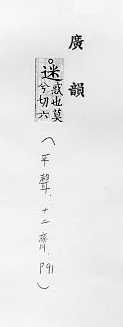 廣韻
迷惑也莫兮切六
(平聲.十二齊.P91)